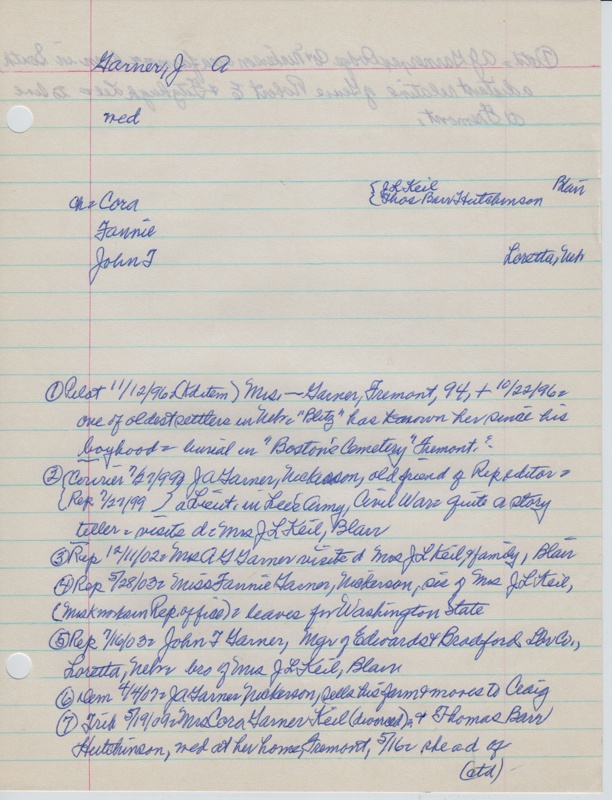 Garner, J A
wed
ch = Cora {J L Keil Blair
{Thos Barr Hutchinson
Fannie
John T Loretta, Neb
① Pilot 11/12/96 (Ad item) Mrs. — Garner, Fremont, 94, + 10/22/96 =
one of oldest settlers in Neb = "Blitz" has known her since his
boyhood = burial in "Boston's Cemetery" Fremont. ?
② {Courier 7/27/99} J A Garner, Nickerson, old friend of Rep. editor =
{Rep 7/27/99 } a Lieut. in Lee's Army, Civil War = quite a story
teller = visits d = Mrs J L Keil, Blair
③ Rep 12/11/02 = Mrs A G Garner visits d Mrs J L Keil, & family, Blair
④ Rep 5/28/03 = Miss Fannie Garner, Nickerson, sis of Mrs J L Keil,
(Miss K works in Rep. office) = leaves for Washington State
⑤ Rep 7/16/03 = John T Garner, Mgr of Edwards & Bradford Lbr Co.,
Loretta, Neb = bro of Mrs J L Keil, Blair
⑥ Dem 4/4/07 = J A Garner Nickerson, sells his farm & moves to Craig
⑦ Trib 5/19/09 = Mrs Cora Garner Keil (divorced), & Thomas Barr
Hutchinson, wed at her home, Fremont, 5/16 = she ad of
(ctd)